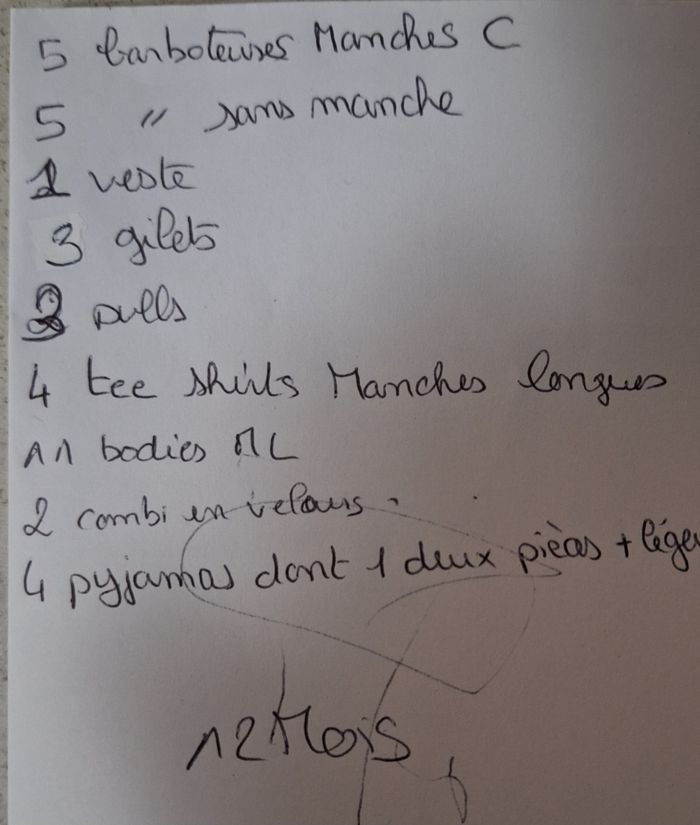 5 barboteuses Manches C
5 " sans manche
1 veste
3 gilets
pulls
4 tee shirts Manches longues
11 bodies ML
2 combi en velours.
4 pyjamas dont 1 deux pièces +
12 Mois